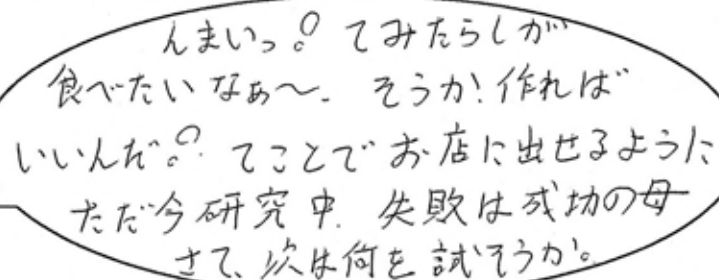 んまいっ！てみたらしが
食べたいなぁ～。そうか！作れば
いいんだ！てことでお店に出せるように
ただ今研究中。失敗は成功の母
さて、次は何を試そうか。